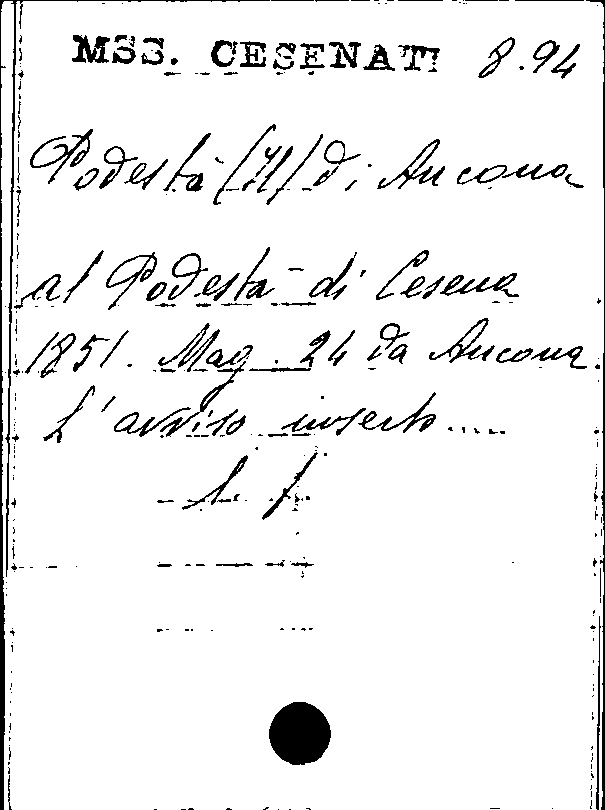 MSS. CESENATI 8.94
Podestà (Il) di Ancona
al Podestà di Cesena
1851. Mag. 24 da Ancona
L'avviso inserto.....
l. f.